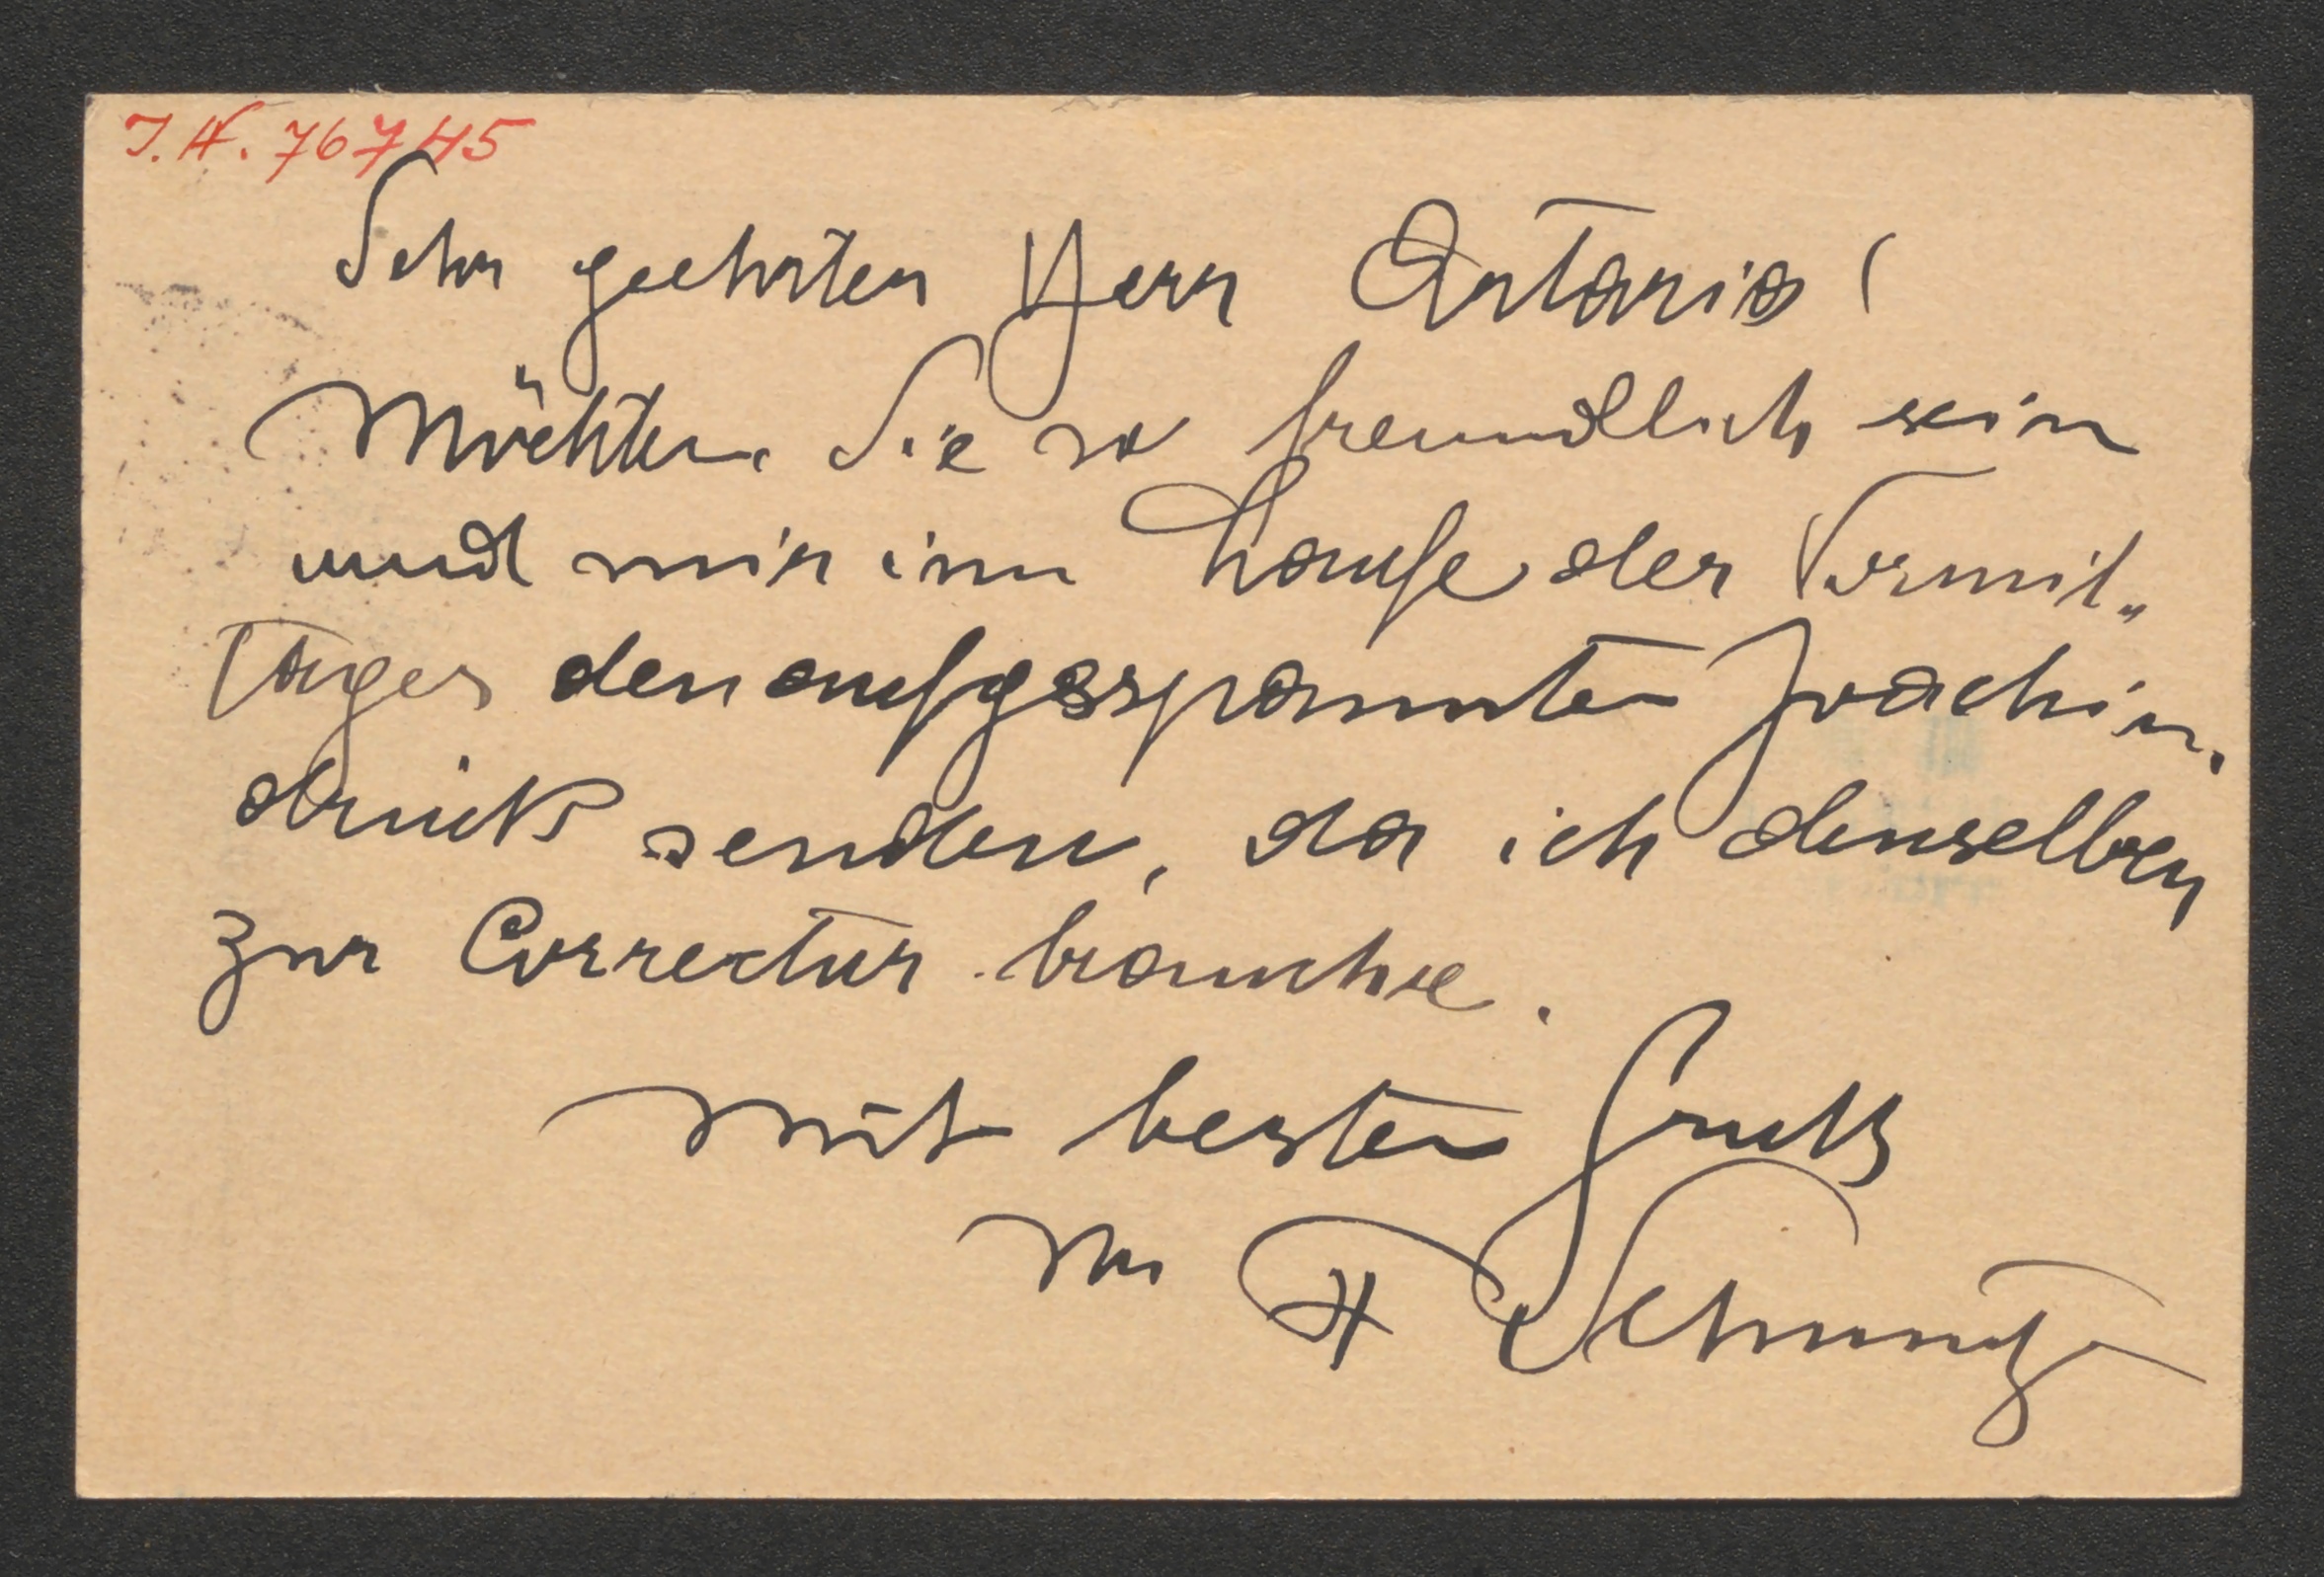 I.N. 76745
Sehr geehrter Herr Artaria!
Möchten Sie so freundlich sein
und mir im Laufe des Vormit„
tages den aufgespannten Joachim.
druck senden, da ich denselben
zur Correctur brauche.
Mit besten Gruß
Ihr F Schmutzer